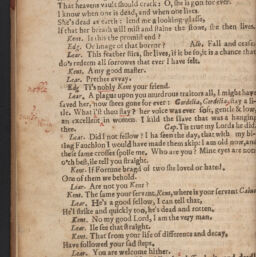 That heavens vault should crack: O, she is gon for ever.
I know when one is dead, and when one lives.
She's dead as earth: lend me a looking-glasse,
If that her breath will mist and staine the stone, she then lives.
Kent. Is this the promist end?
Edg. Or image of that horror? Alb. Fall and cease.
Lear. This feather stirs, she lives, if it be so, it is a chance that
do's redeem all sorrowes that ever I have felt.
Kent. A my good master.
Lear. Prethee away.
Edg. Ti's nobly Kent your friend.
Lear. A plague upon you murderous traitors all, I might have
saved her, now shees gone for ever: Cordelia, Cordelia, stay a lit-
tle. What i'st thou say? her voice was ever soft, gentle & low,
an excellent in women. I kild the slave that was a hanging
thee. Cap. Tis true my Lords he did.
Lear. Did I not fellow? I ha seen the day, that with my bi-
ting Fauchlon I would have made them skip: I am old now, and
these same crosses spoile me. Who are you? Mine eyes are none
o'th best, ile tell you straight.
Kent. If Fortune bragd of two she loved or hated,
One of them we behold.
Lear. Are not you Kent?
Kent. The same your servant, Kent, where is your servant Caius
Lear. He's a good fellow, I can tell that,
He'l strike and quickly too, he's dead and rotten.
Kent. No my good Lord, I am the very man.
Lear. Ile see that straight.
Kent. That from your life of difference and decay,
Have followed your sad steps,
Lear. You are welcome hither.